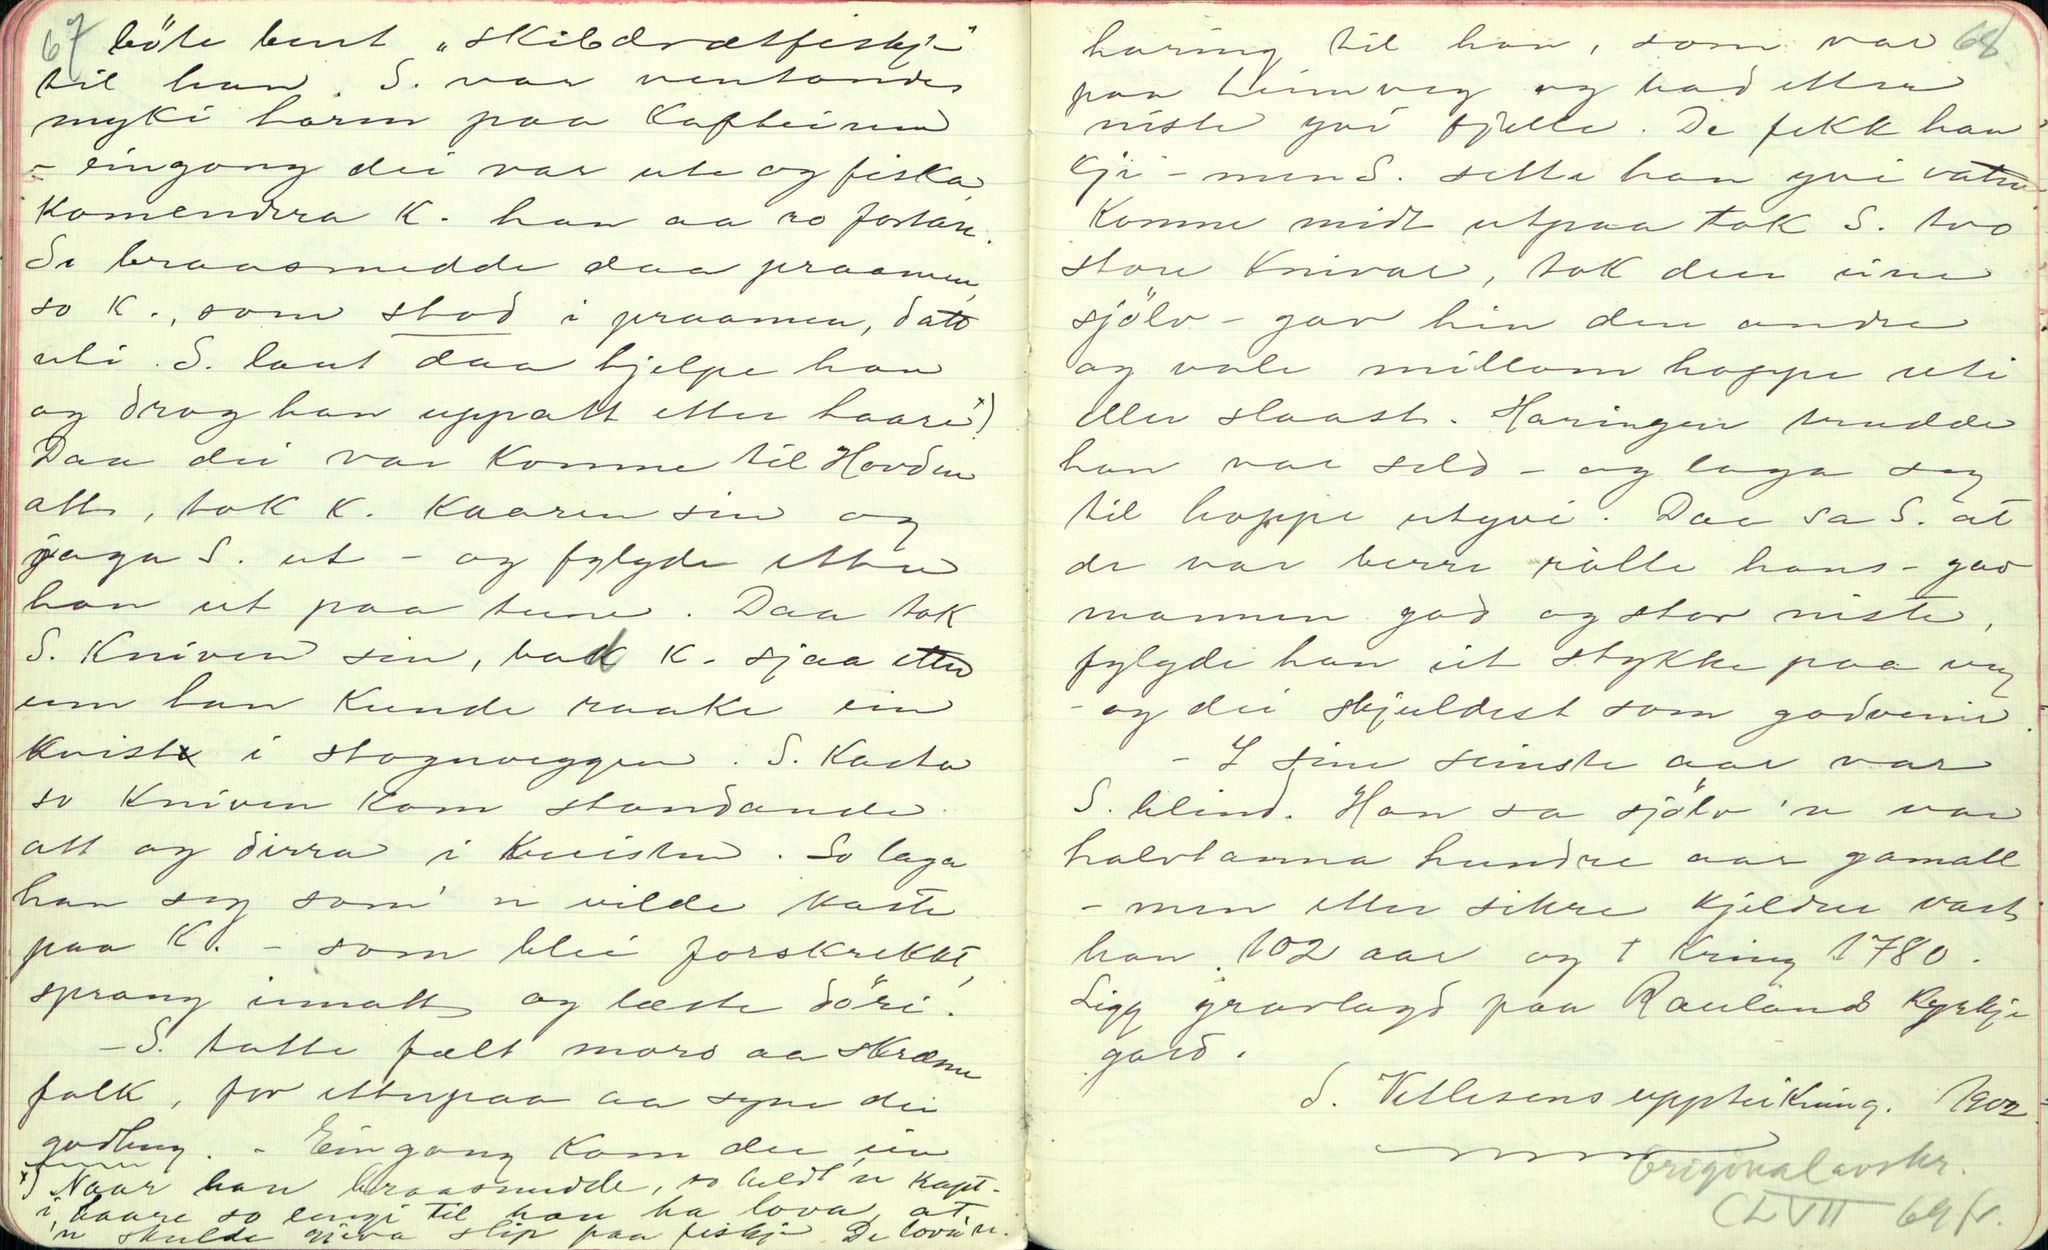 67
böte bent "skibdrætfiskj"
til han. S. var ventande
myki harm paa Kafteinen
- eingong dei var ute og fiska,
Komendera K. han aa ro fortare.
So braasnudde daa praamen,
so K., som stod i praamen, datt
uti. S. laut daa hjelpe han
og drog han uppatt etter haare x)
Daa dei var Komne til Hovden
att, tok K. Kaaren sin og
jaga S. ut - og fylgde etter
han ut paa tune. Daa tok
S. Kniven sin, bad K. sjaa etter
um han Kunde raake ein
Kvist i stogneveggen. S. Kasta
so Kniven Kom standande
att og dirra i Kvisten. So laga
han seg som 'n vilde kaste
paa K. - som blei forskrekkt,
sprang innatt og læste döri.
- S. totte fælt moro aa skræme
folk, for etterpaa aa syne dei
godhug. - Eingong Kom der ein
x) Naar han braasnudde, so heldt 'n Kapt-
i haare so lengi til han ha lova, at
'n skulde gjeva slip paa fiskje. De lova 'n.
68
haring til han, som var
paa heimveg og bad etter
niste yvi fjelle. De fekk han
Kji - men S. sette han yvi vatne
Komne midt utpaa tok S. tvo
store Knivar, tok den eine
sjölv - gav hin den andre
og vale millom hoppe uti
eller slaast. Haringen trudde
han var seld - og laga seg
til hoppe utyvi. Daa sa S. at
de var berre rålte hans - gav
mannen god og stor niste,
fylgde han eit stykke paa veg
- og dei skjeldest som godvenir.
- I sine seinste aar var
S. blind. Han sa sjölv 'n var
halvtanna hundre aar gamall
- men etter sikre Kjeldur vart
han 102 aar og † Kring 1780.
Ligg gravlagd paa Raulands Kyrkje
gard.
S. Vetlesens uppteikning. 1902
Originalavskr.
CLVII 69 fr.